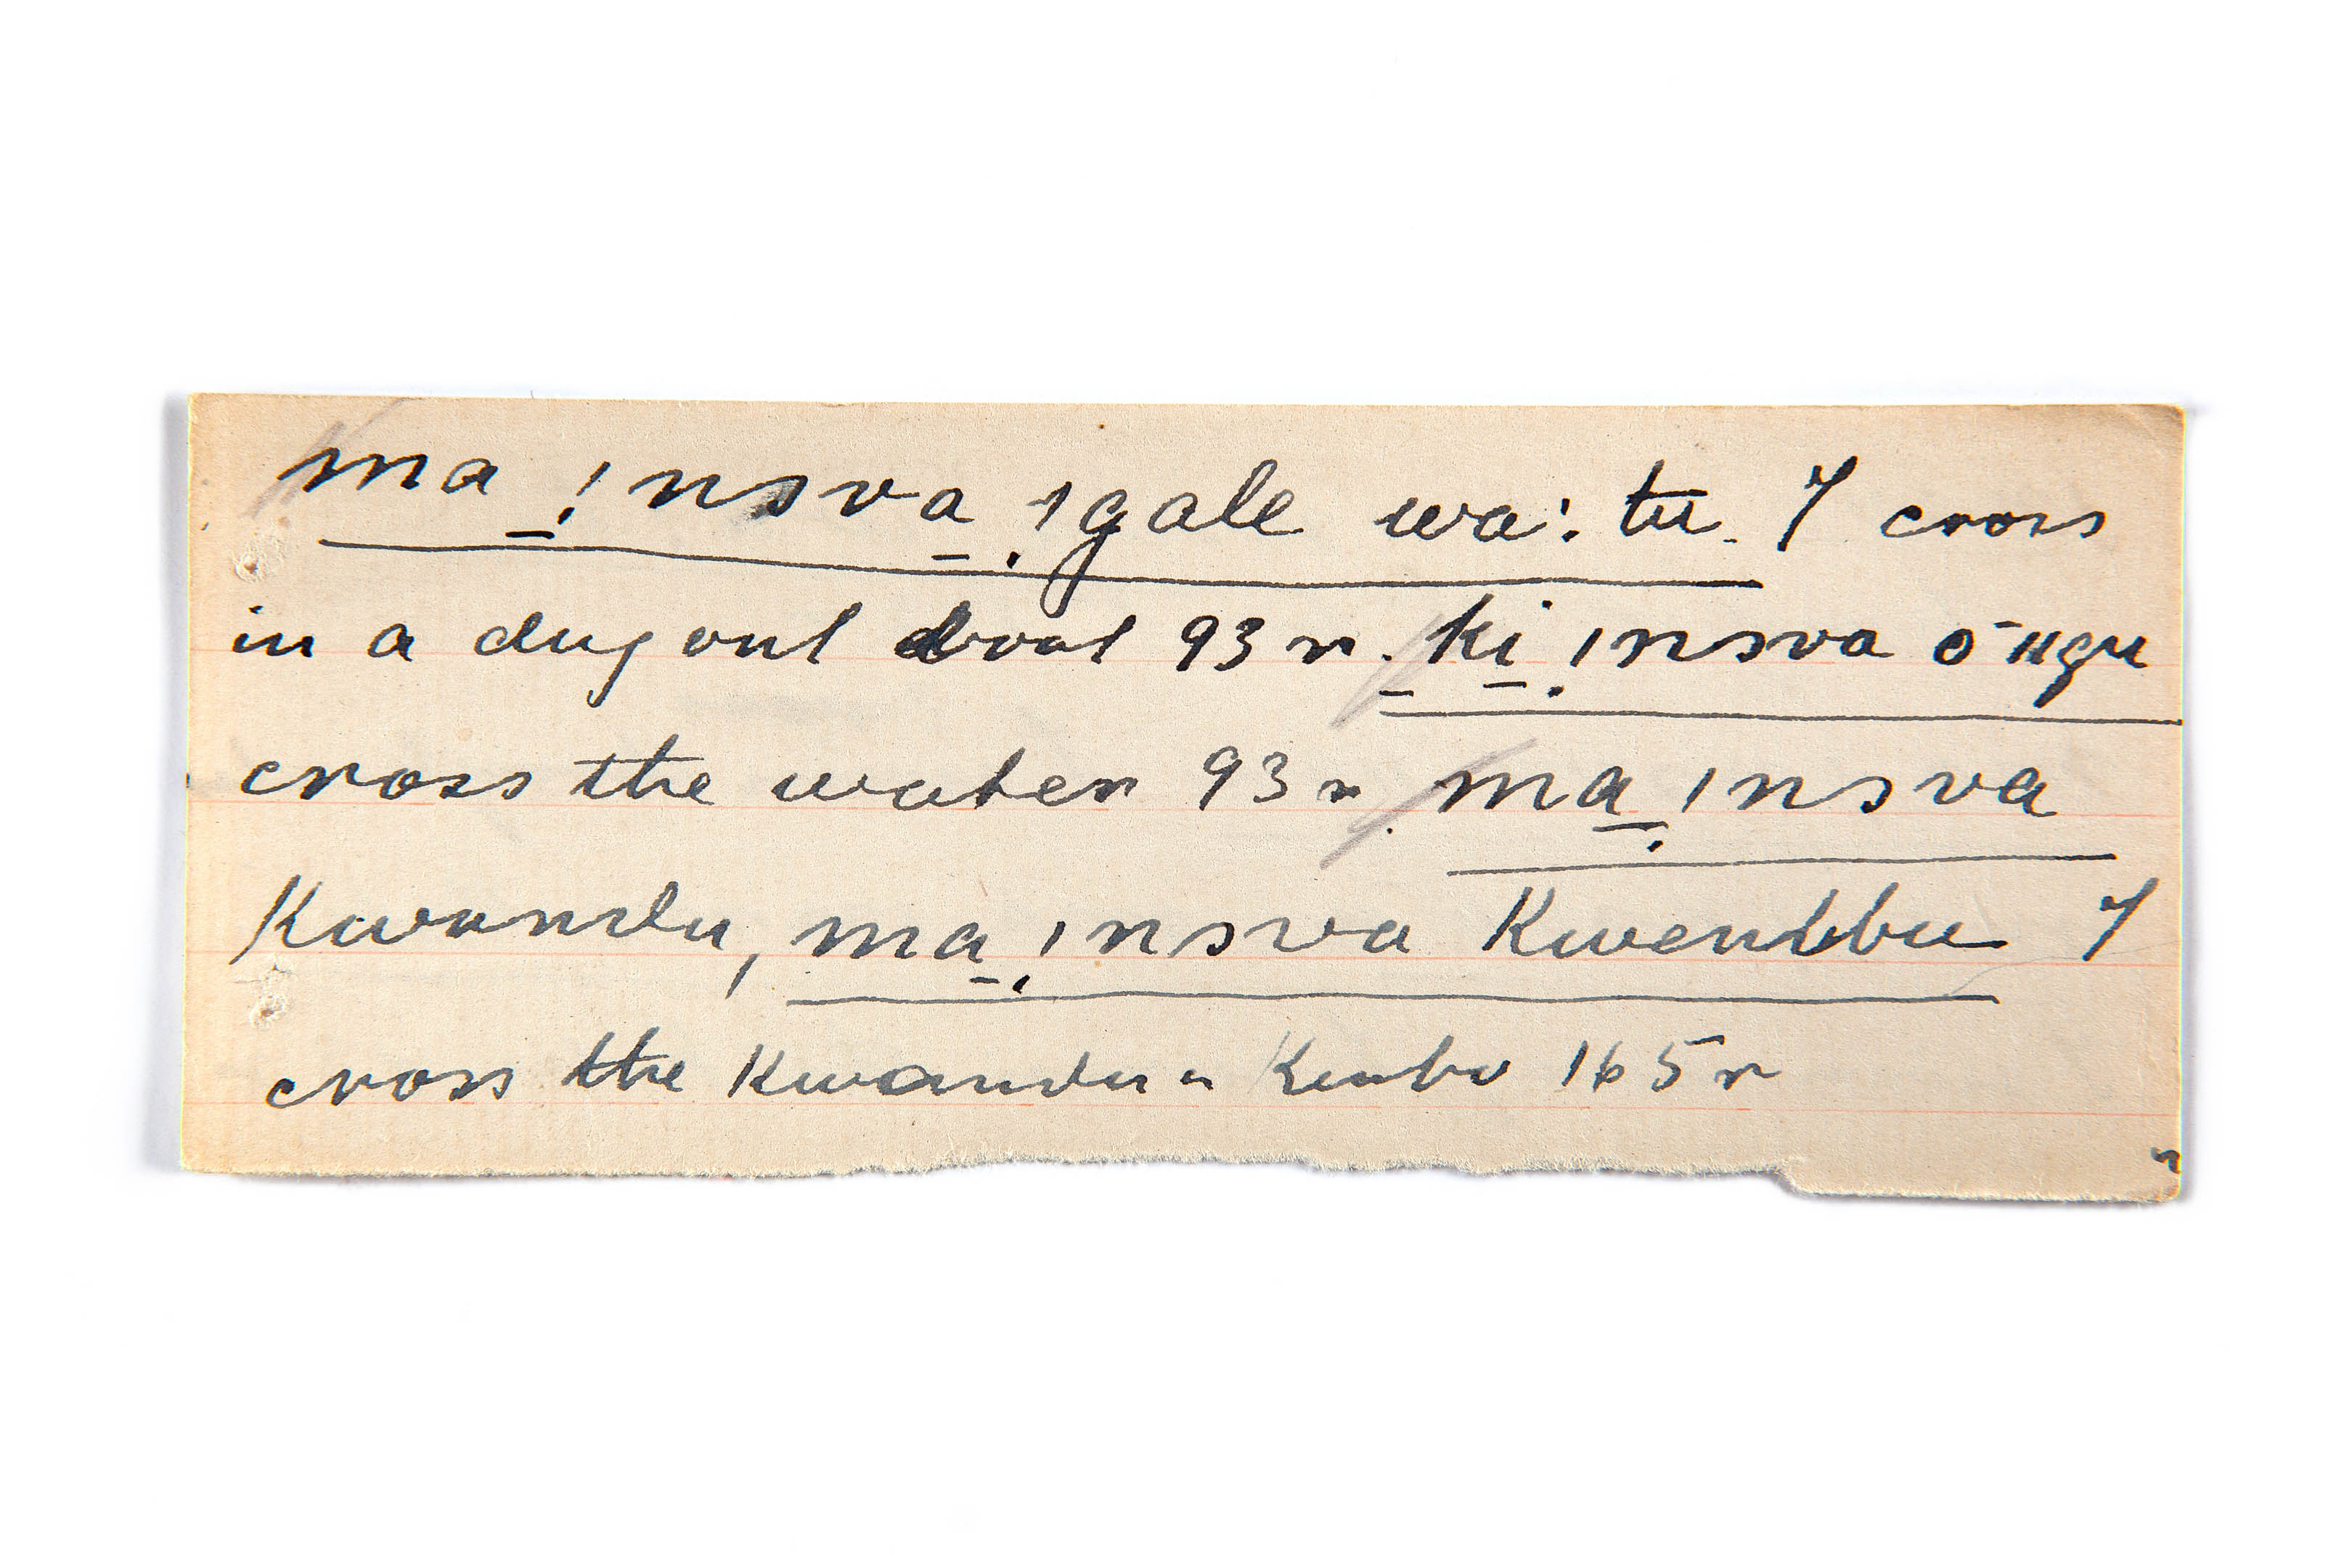 ma ̱ǃ nsva̱ ̣ıgale wa : tu. I cross
in a dugout boat 93 r. ki̱ ̣ınsva ō'ngu
cross the water 93 r. ma̱ ̣ınsva
Kwandu, ma̱ ̣ınsva Kwenbbu I
cross the Kwandu " Kembo 165 r